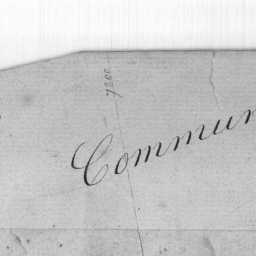 7200
Commun